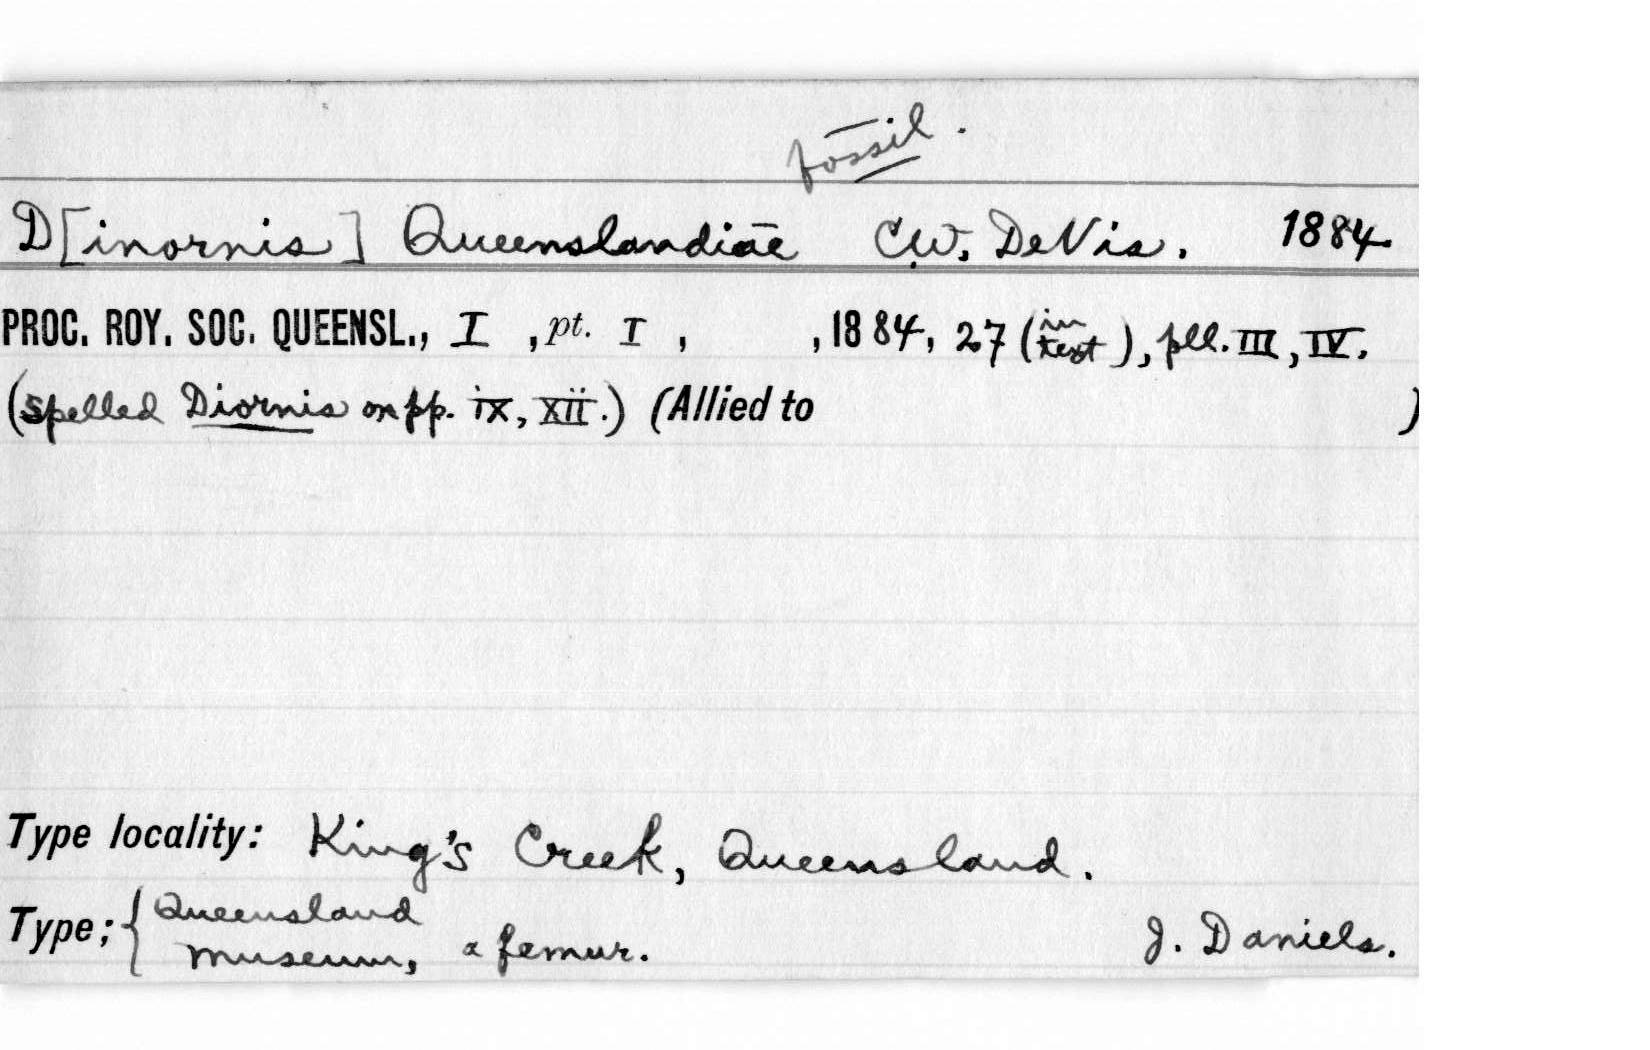 fossil.
D[inornis] Queenslandiae C.W. DeVis. 1884.
PROC. ROY. SOC. QUEENSL., I , pt. I , , 1884, 27 (in text), pll. III, IV.
(spelled Diornis on pp. ix, xii.) (Allied to )
Type locality: King's Creek, Queensland.
Type; { Queensland
museum, a femur. J. Daniels.